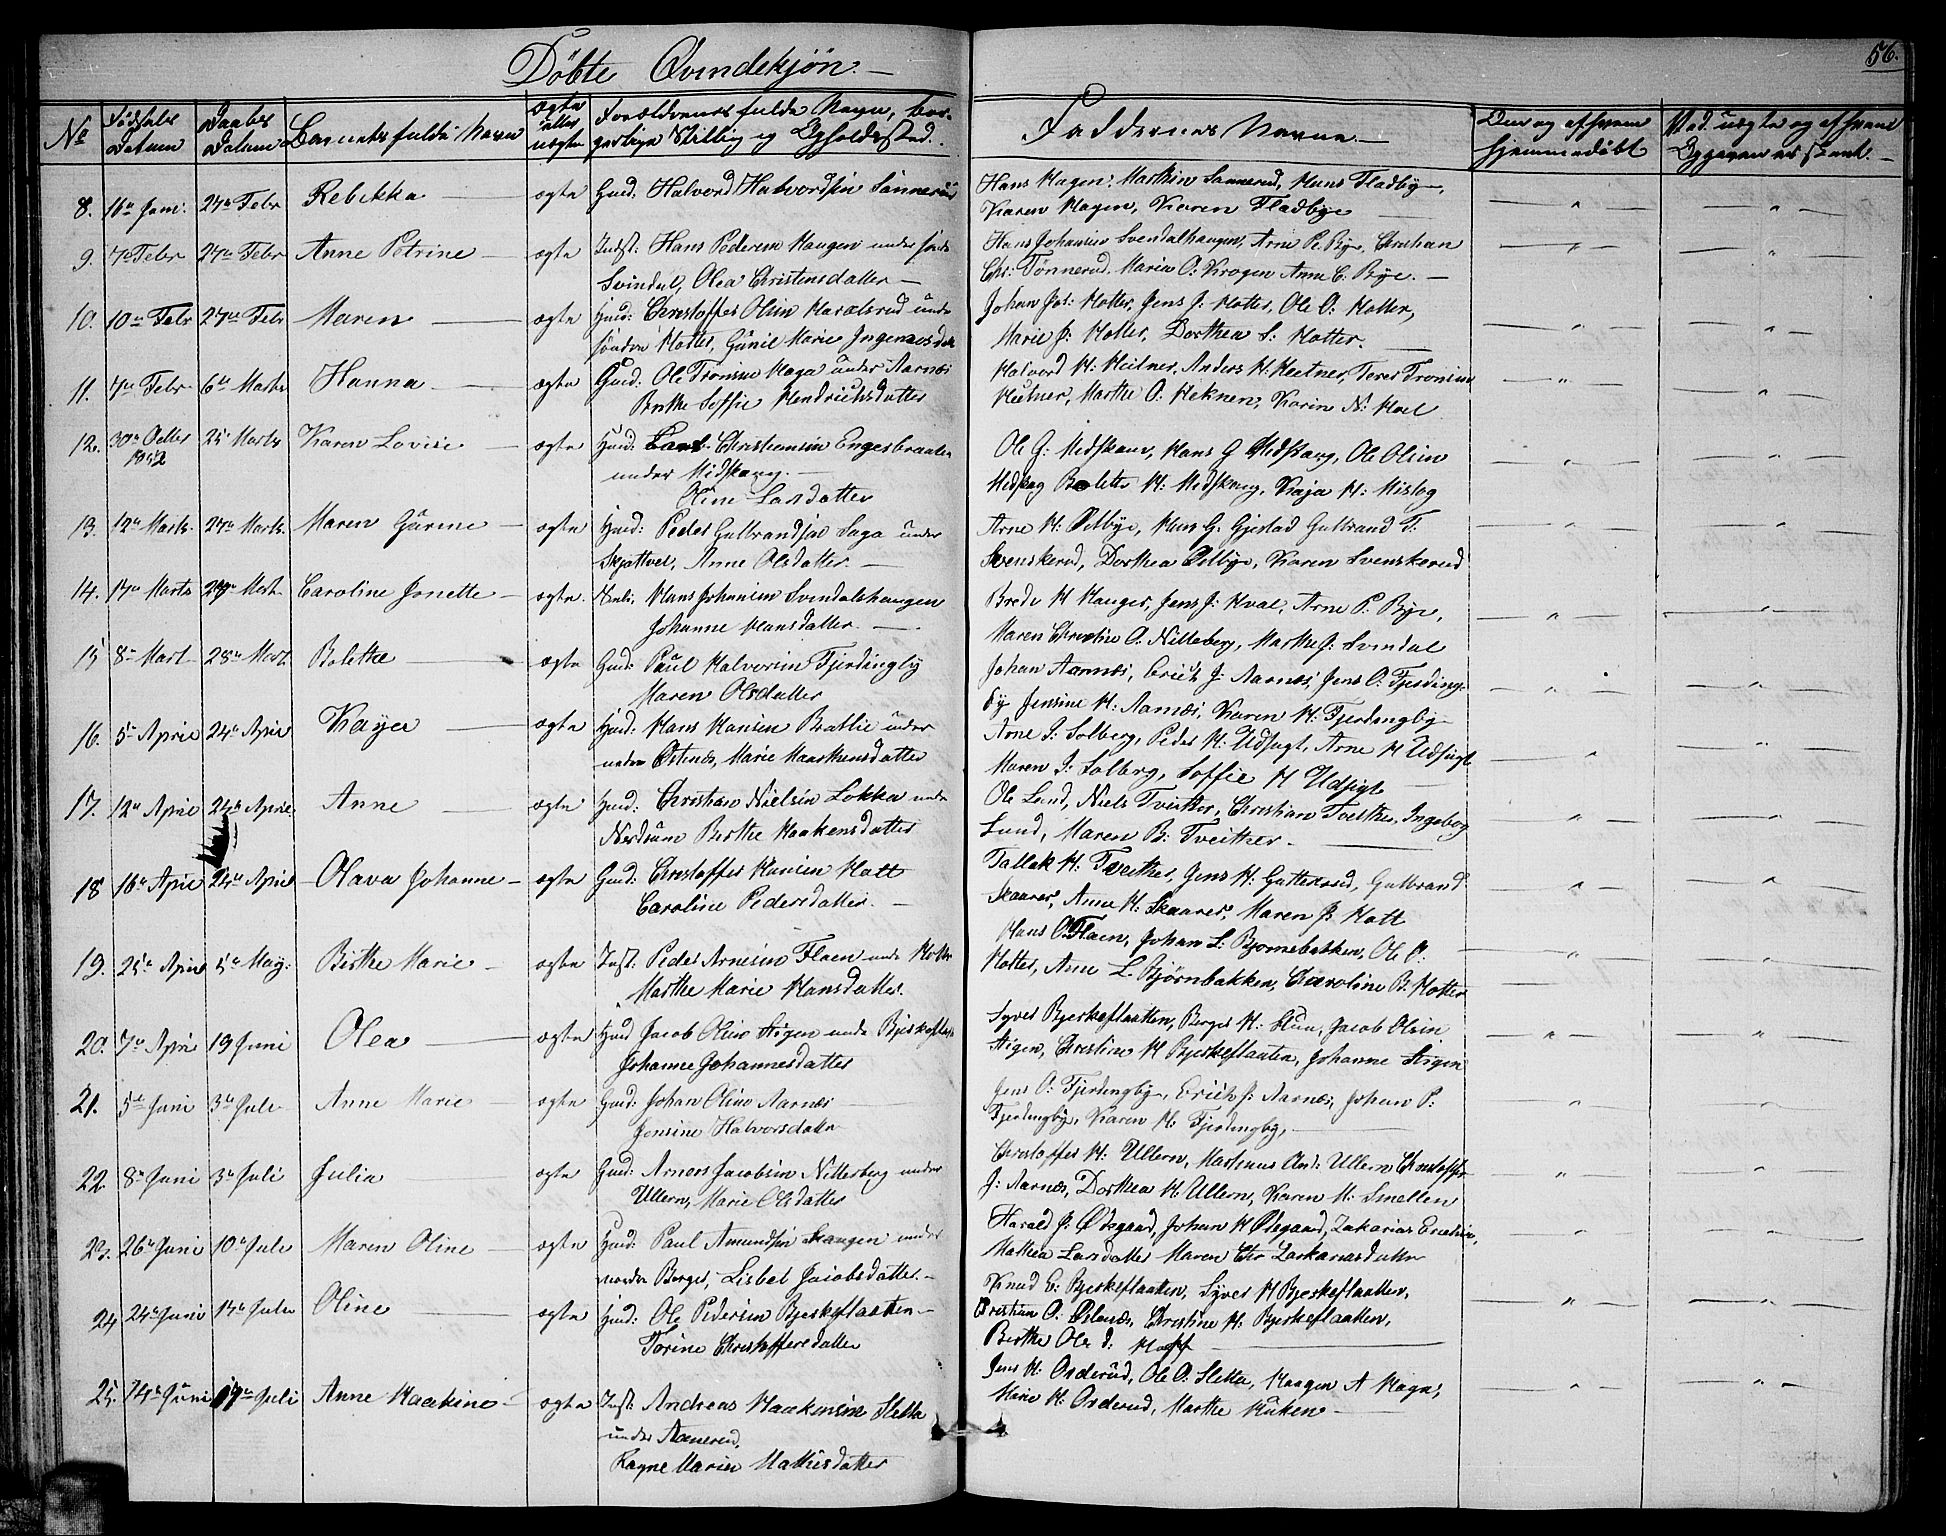 Döbte Qvindekjön.
56.
No
Fødsels Datum
Daabs Datum
Barnets fulde Navn
ægte eller uægte
Forældrenes fulde Navn, bor-
gerlige Stilling og Opholdssted.
Faddernes Navne.
Om og af hvem hjemmedöbt
8. 16de Jani. 27de Febr Rebekka ægte Gaard: Halvord Halvordsen Sannerud
Hans Hagen, Mathias Sannerud, Hans Fladbye,
Karen Hagen, Karen Fladbye
9. 7de Febr 27de Febr Anne Petrine ægte Indst: Hans Pedersen Haugen under søndre
Svindal, Olea Christensdatter
Hans Johansen Svendalhaugen, Arne P. Bye, Christian
Chr: Tønnerud, Maria O: Krogen Anne C. Bye.
10. 10de Febr 27de Febr Maren ægte Huusd: Christoffer Olsen Haralsrud under
søndre Hotter, Gunil Marie Ingemosdatter
Johan Jos: Hotter, Jens J. Hotter, Ole O. Hotter,
Marie J: Hotter, Dorthea S: Hotter.
11. 7de Febr 6te Marts Hanna ægte Huusd: Ole Tronsen Haga under Aarnæs
Berthe Soffie Hendrichsdatter
Halvord H. Heitner, Anders H. Heetner, Peter Tronsen
Heitner, Marthe O. Heknen, Karin N: Hoel
12. 30te Octbr 1852 25 Marts Karen Lovise ægte Huusd: Lars Christiansen Engersbraaten
under Midskoug.
Oline Larsdatter
Ole G: Midskouv, Hans G Midskoug, Ole Olsen
Midskog Bolette H: Midskoug, Kaja H: Miskog
13. 12te Marts 27de Marts. Maren Gurine ægte Huusd: Peder Gulbrandsen Saga under
Skjattvet, Anne Olsdatter
Arne H. Ølbye, Hans G. Gjestad Gulbrand F.
Svenskerud, Dorthea Ølbye, Karen Svenskerud
14. 17de Marts 27de Mart. Caroline Jonette ægte. Hans Johansen Svendalshaugen
Johanne Hansdatter.
Brede H Hauger, Jens J: Hval, Arne P. Bye,
Maren Christine O. Nitteberg, Marthe J: Svindal
15 8de Mart 28de Mart Bolethe ægte Gaard: Paul Halvorsen Fjerdingby
Maren Olsdatter
Johan Aarnæs, Erich J. Aarnæs, Jens O. Fjerding-
by Jensine H. Aarnæs, Karen H. Fjerdingby
16. 5te April 24de April Kaya ægte Huusd: Hans Hansen Brathe under
nedre Østnæs, Marie Haaskensdatter
Arne J. Solberg, Peder H: Udsigt, Arne H Udsigt
Maren J. Solberg, Soffie H Udsigt
17. 12te April 24de April Anne ægte Huusd: Christian Nielsen Løkka under
Nordrum Berthe Haakensdatter
Ole Lund, Niels Tveither, Christian Tveither, Ingeborg
Lund, Maren B: Tveither.
18 16de April 24de April Olava Johanne ægte Gaard: Christoffer Hansen Hott
Caroline Pedersdatter.
Tallak H. Tveither, Jens H. Gutterud, Gulbrand
Skaarer, Anne H. Skaarer, Maren J: Hott
19. 25de April 5te May: Berthe Marie ægte Inst: Peder Arnesen Flaen under Hotter
Marthe Marie Hansdatter.
Hans O. Flaen, Johan L: Bjørnebakken, Ole O.
Hotter, Anne L. Bjørnbakken, Charoline B. Hotter
20. 7de April 19 Juni Olea ægte Huusd Jacob Olsen Stigen under Bjerkeflaaten
Johanne Johannesdatter
Syver Bjerkeflaatten, Berger H. Huu, Jacob Olsen
Stigen, Christine H Bjerkeflaaten, Johanne Stigen
21. 5te Juni 3de Juli Anne Marie ægte Gaard: Johan Olsen Aarnæs
Jensine Halvorsdatter
Jens O: Fjerdingby, Erich J: Aarnæs, Johan P:
Fjerdingby, Karen H: Fjerdingby,
22 8de Juni 3de Juli Julia ægte Huusd: Arners Jacobsen Nitterberg under
Ullern, Marie Olsdatter
Christoffer H: Ullern, Marthinus And: Ullern Christoffer
J: Aarnæs, Dorthea H. Ullern, Karen M: Smellen
23. 26de Juni 10de Juli Maren Oline ægte Huusd: Paul Amundsen Haugen under
nordre Berger, Lisbet Jacobsdatter.
Harald J: Ødegaard, Johan H Ødegaard, Zakarias Erichsen,
Mathea Larsdatter Maren Chr Zackariasdatter
24 24de Juni 17de Juli Oline ægte Huusd: Ole Pedersen Bjerkeflaaten
Torine Christoffersdatter
Knud E: Bjerkeflaaten, Syver H Bjerkeflaatten,
Christian O. Østenæs, Christine H. Bjerkeflaatten,
Berthe Ole d: Hoff
25. 14de Juni 17de Juli Anne Haakine ægte Inst: Andreas Haakensen Sletta
under Aanerud,
Ragne Marie Mathisdatter
Jens H. Orderud, Ole O. Sletta, Haagen A Haga,
Marie H. Orderud, Marthe Huken